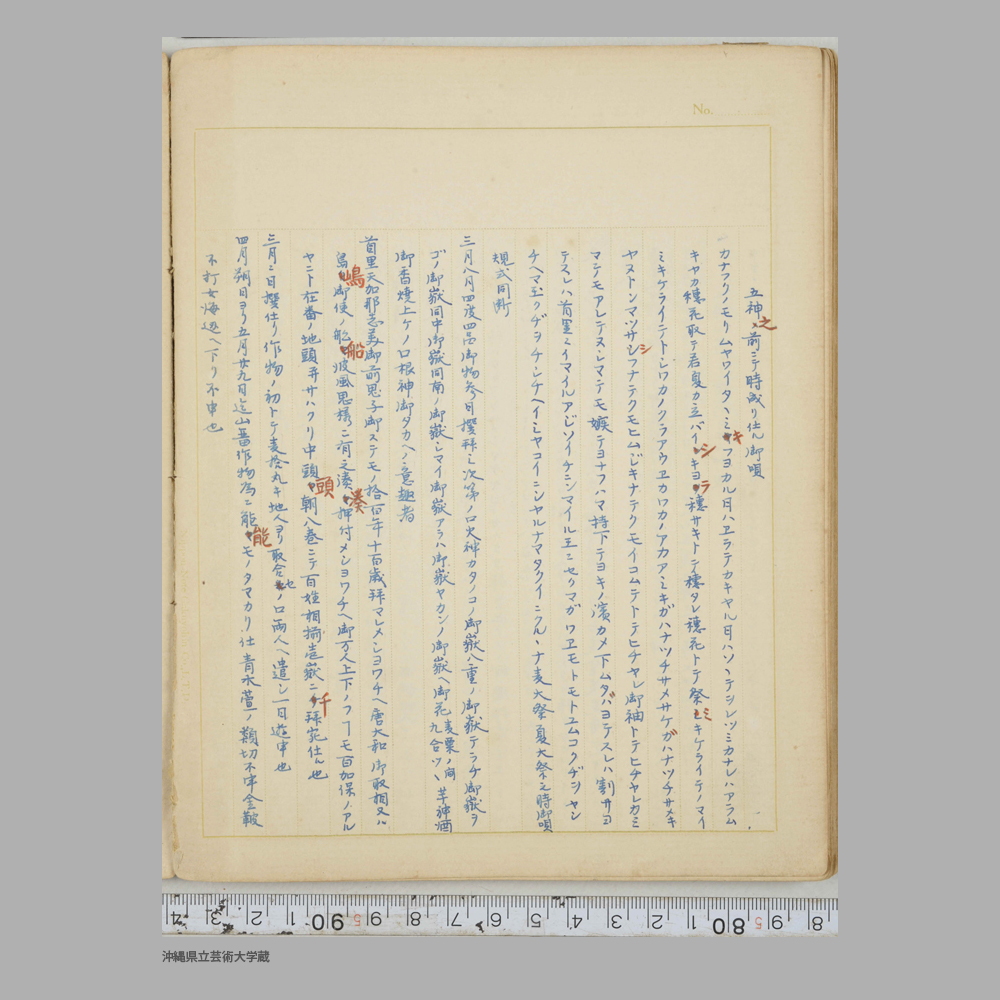 No.
五神之前ニテ時成り仕ル御唄
カナフクノモリムヤワイタヽミキフヨカル月ハヱラテカキヤル日ハソヽテシレツミカナレハアラム
キヤカ穂花取テ君夏カ立バイシキヨラ穂サキトテ穂タレ穂花トテ祭ミキケライテノマイ
ミキケライテトシワカノクラアウヱカワカノアカアミキガハナツチサメサケガハナツチサメキ
ヤストンマツサシフナテクモヒムジキナテクモイコムテトテヒチヤレ御袖トテヒチヤレカミ
マテノモアレテヌレマテモ嫉テヨナフハマ持下テヨキノ濱カメ下ムタバヨテスレハ割サヨ
テスレハ首里ミイマイルアジソイテニンマイル王ニセクマガワヱモトモトユムコクヂツヤン
チヘマヱクヂヲチンチヘイミヤコイニシヤルナマタクイニクルヽナ麦大祭夏大祭之時御唄
規式同断
三月八月四度四品御物参日撰拜之次第ノロ火神カタノコノ御嶽八重ノ御嶽テラチ御嶽ヲ
ゴノ御嶽同中御嶽同南ノ御嶽シマイ御嶽アラハ御嶽ヤカンノ御嶽ヘ御花九合ツヽ麦粟ノ向芋神酒
御香焼上ケノロ根神御タカヘノ意趣者
首里天加那志美御前思子御ステモノ拾百年十百歳拜マレメシヨワチヘ唐大和御取相又ハ
嶋々御使ノ船波風思様ニ有之湊々押付メシヨワチヘ御万人上下ノフーモ百加保ノアル
ヤニト在番ノ地頭并サハクリ中頭朝八巻ニテ百姓相揃壱嶽ニ仟拜宛仕ル也
三月三日撰仕リ作物ノ初トテ麦拾丸キ地人ヨリ取合セノロ両人ヘ遣シ一日遊申也
四月朔日ヨリ五月廿九日迄山留作物為ニ能モノタマカリ仕青水萱ノ類切不申金鞁
不打女海辺ヘ下リ不申也
沖縄県立芸術大学蔵